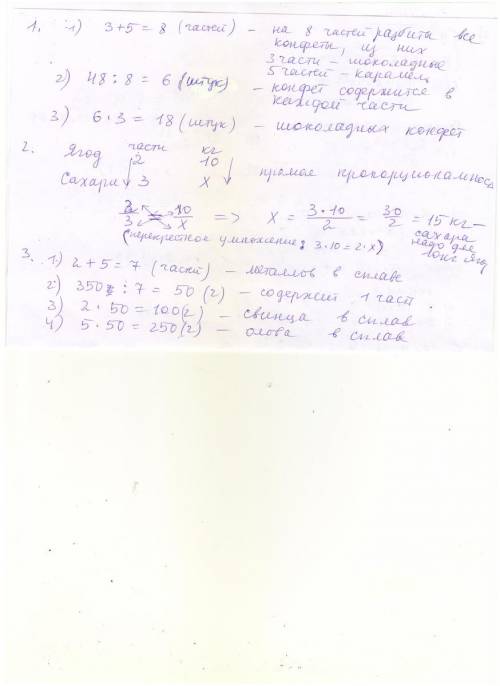 1. 1) 3+5 = 8 (частей) – на 8 частей разбиты все
конфеты, из них
3 части – шоколадные
5 частей – карамель
2) 48 : 8 = 6 (штук) – конфет содержится в
каждой части
3) 6 · 3 = 18 (штук) – шоколадных конфет
2. части кг
Ягод 2 10
Сахара 3 x прямая
2/3 = 10/x => x = 3·10/2 = 30/2 = 15 кг – сахара
надо для
10 кг ягод
(перекрестное умножение: 3·10 = 2·x)
3. 1) 2+5 = 7 (частей) – металлов в сплаве
2) 350 : 7 = 50 (г) – содержит 1 част.
3) 2 · 50 = 100 (г) – свинца в сплав
4) 5 · 50 = 250 (г) – олова в сплав